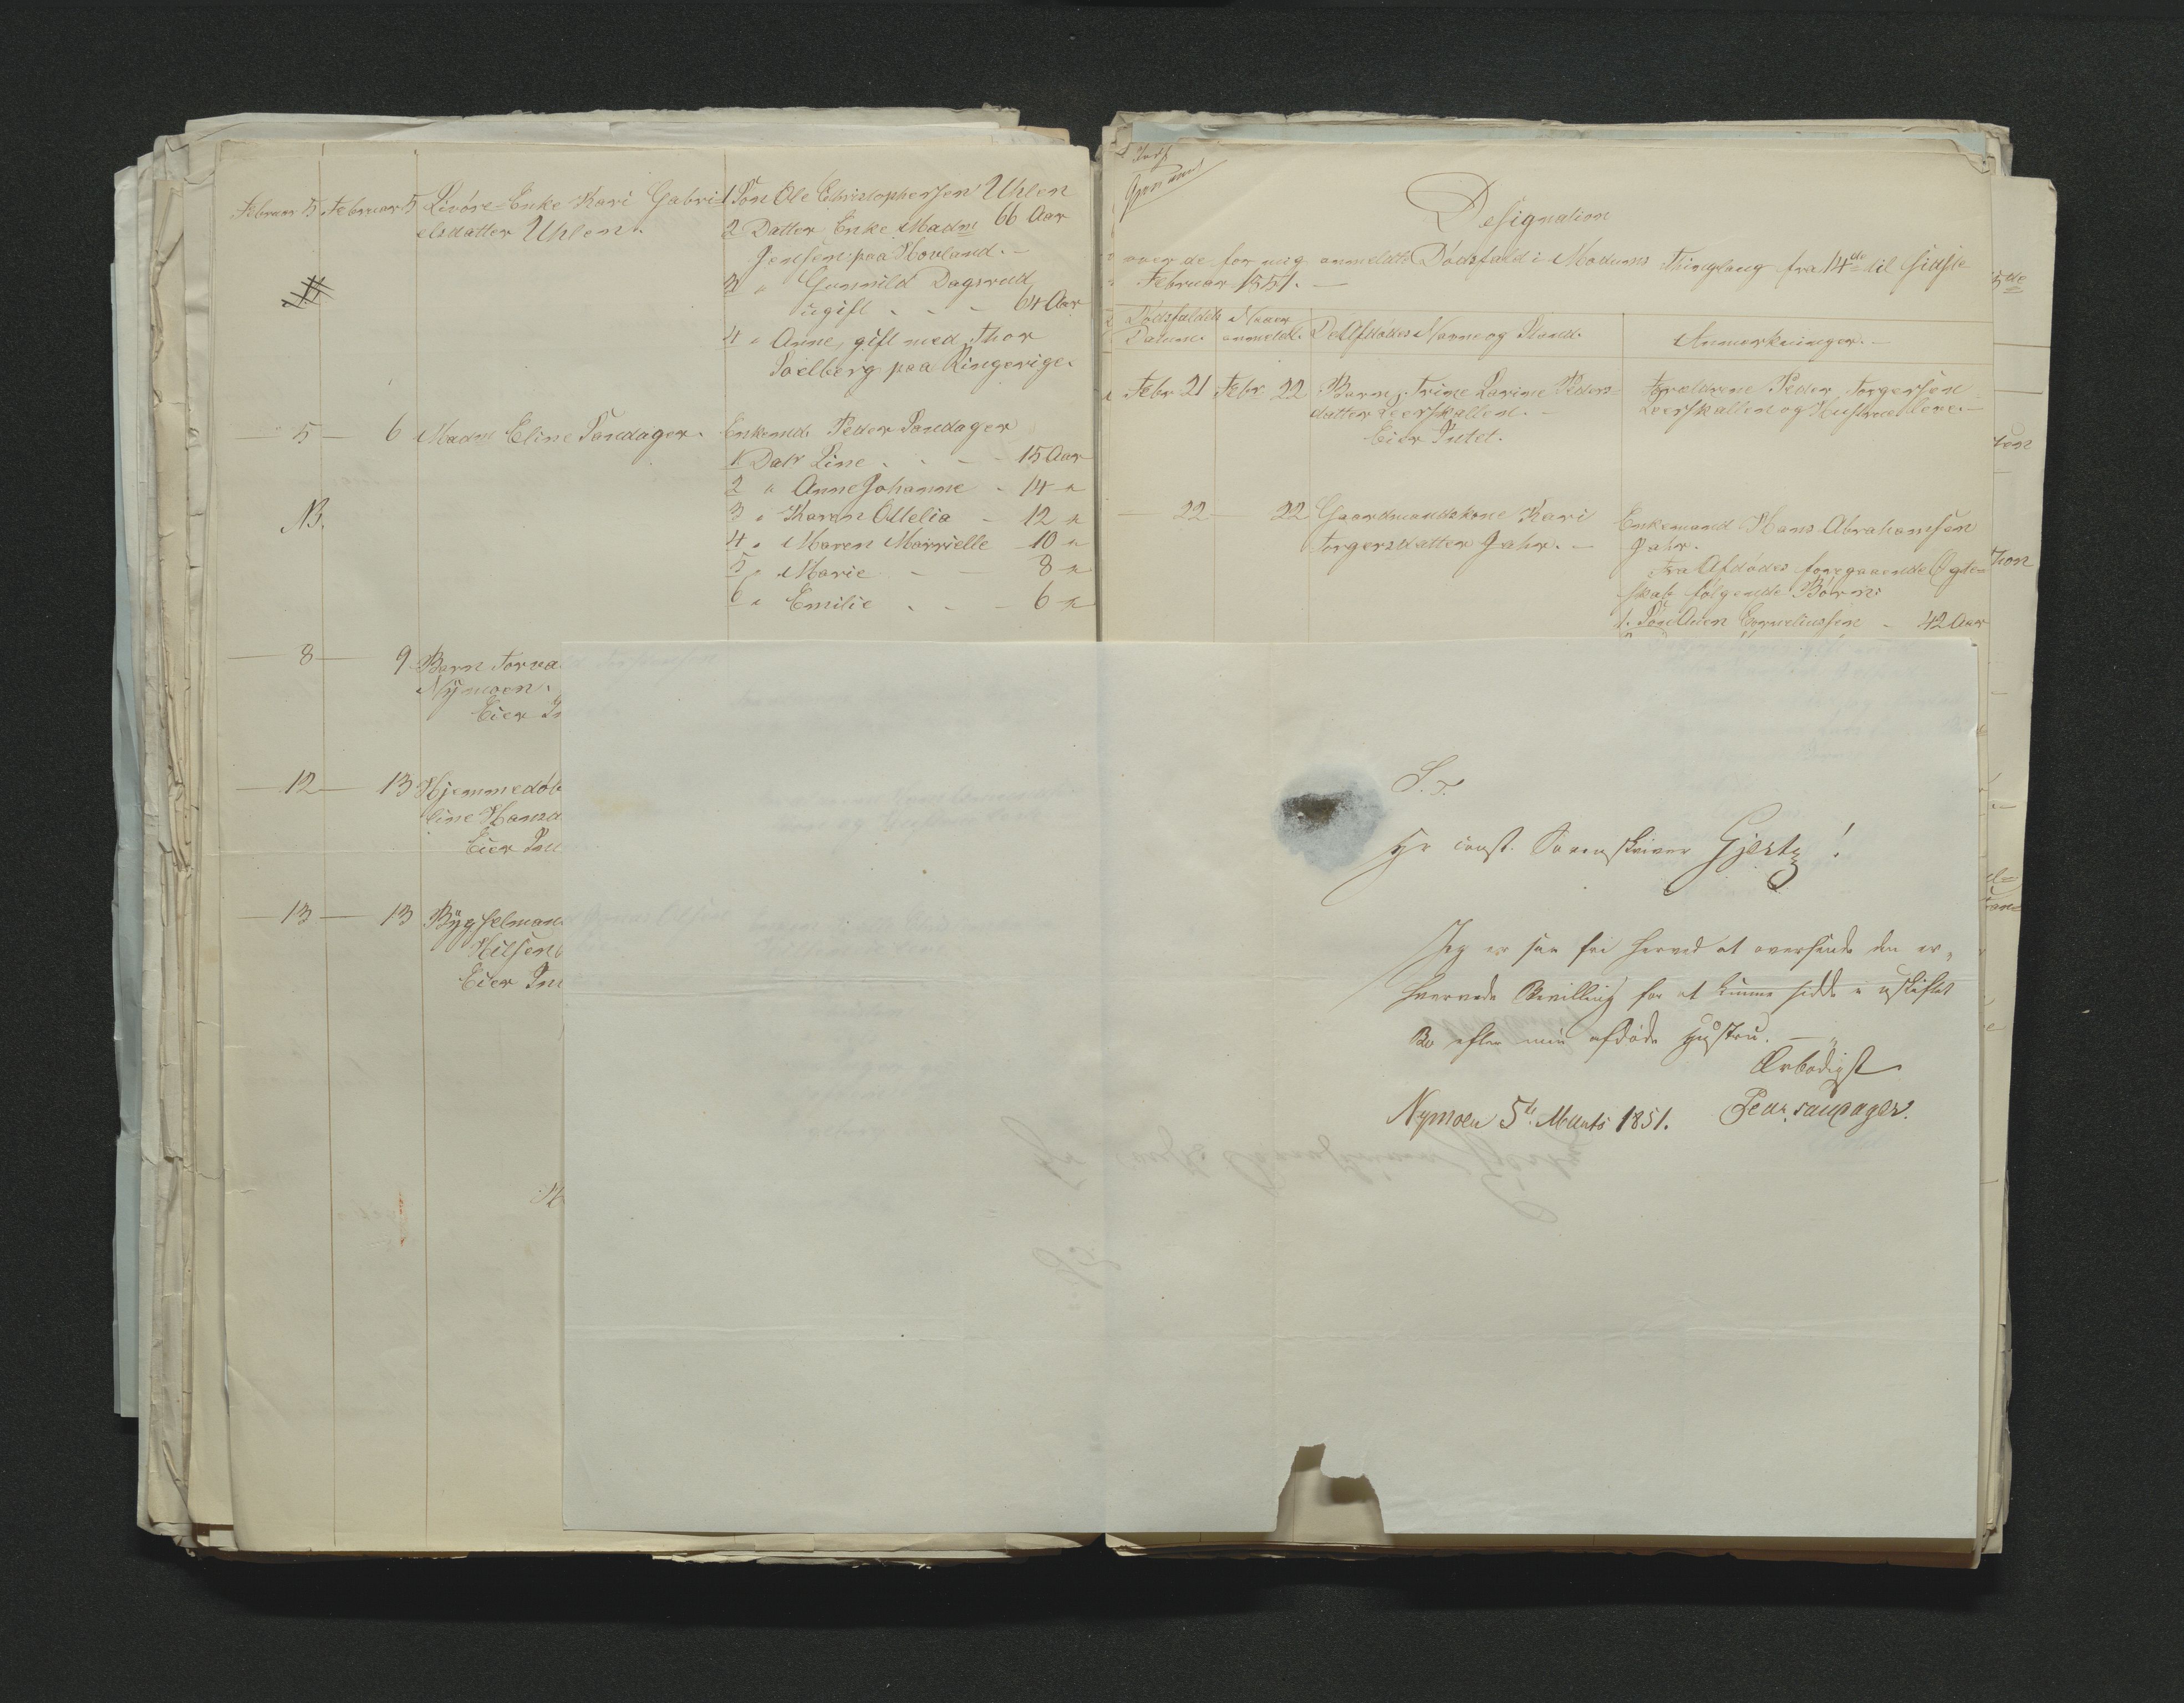 Februar 5 Februar 5 Livöre-Enke Kari Gabri-
elsdatter Uhlen.
1 Søn Ole Christophersen Uhlen
66 Aar
2 Datter Enke Madm
Jensen paa Hovland. -
3 " Gunnild Dagsrud
ugift - - - 64 Aar
4 " Anne, gift med Thor
Soelberg paa Ringerige.
5 - 6 Madm Eline Sandager.
Enkemd. Peder Sandager
1 Datr Line - - - 15 Aar
2 " Anne Johanne - 14 "
NB.
3 " Karen Ollelia - 12 "
4 " Maren Marrielle - 10 "
5 " Marie - - 8 "
6 " Emilie - - - 6 "
- 8 - 9 Barn Torva
Nÿmoen.
Eier In
- 12 - 13 Hjemmedöb
line Hansd
Eier Int
- 13 - 13 Bÿgselman
Hilsen
Eier Int
Designation
over de for mig anmeldte Dödsfald i Modums Thinglaug fra 14de til sidste
Februar 1851. -
Dödsfaldets Datum.
Naar anmeldt.
De Afdödes Navne og Stand.
Anmerkninger. -
Febr 21 Febr 22 Barn Trine Larine Peders-
datter Leerskallen. -
Eier Intet.
Forældrene Peder Torgersen
Leerskallen og Hustrue Lene. -
- 22 - 22 Gaardmandskone Kari
Torgersdatter Jahr. -
Enkemand Hans Abrahamsen
Jahr.
fra Afdödes foregaaende Ægte-
skab følgende Börn:
1. Søn Corneliussen - 42 Aar
S. T.
Hr const. Sorenskriver Gjertz!
Jeg er saa fri herved at oversende den er-
hvervede Bevilling for at kunne sidde i uskiftet
Bo efter min afdøde Hustru. -
Ærbødigst
Nymoen 5te Marts 1851. Peder Sandager.